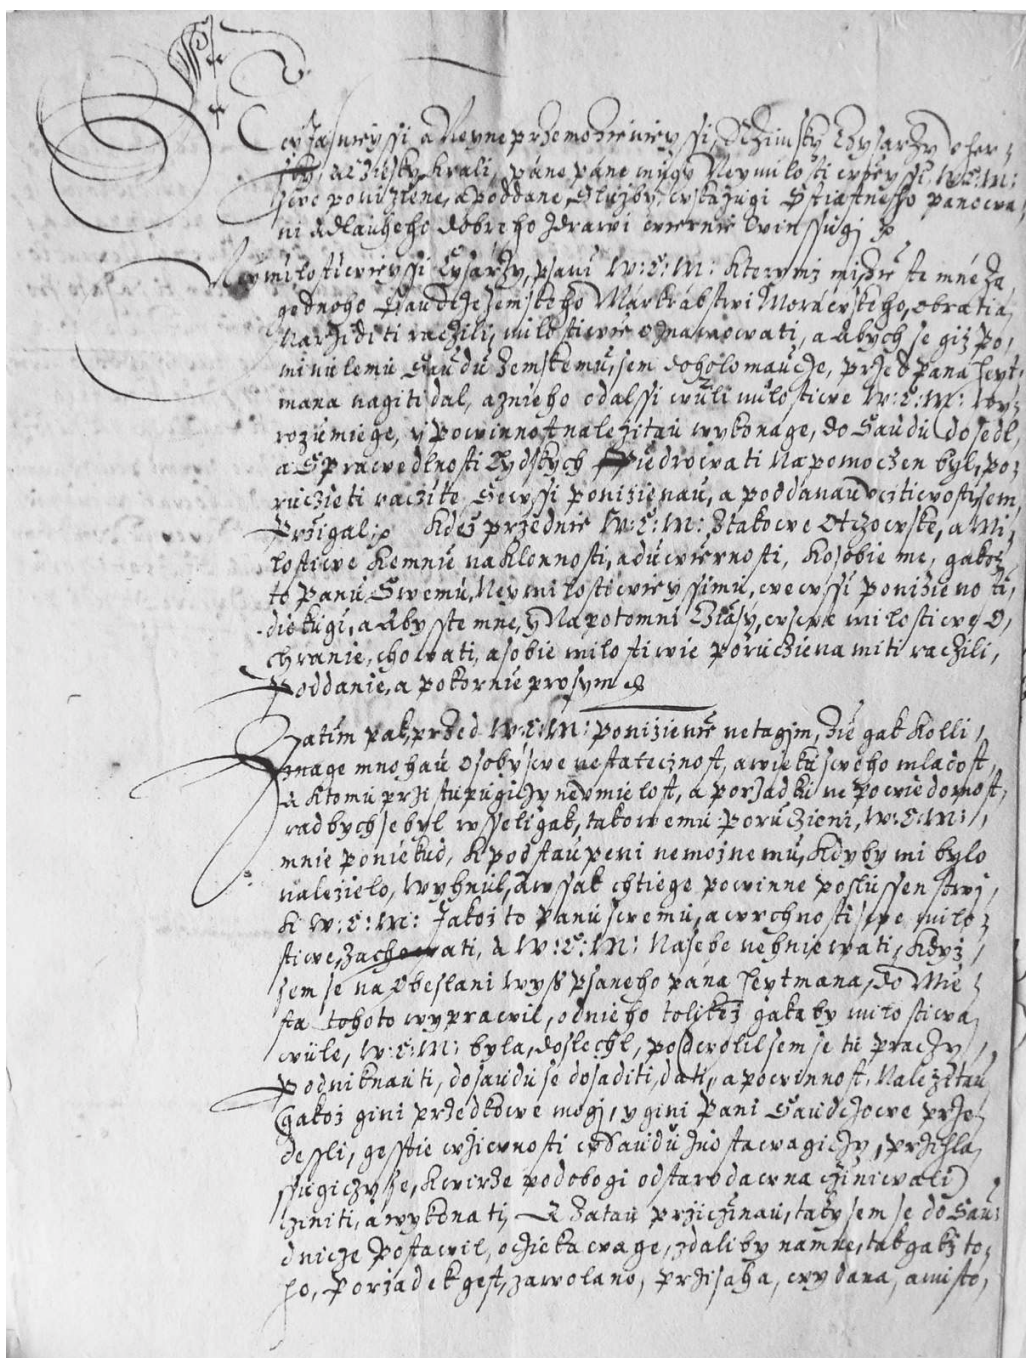 Neyjasniegssi a Neyneprzemozieniegssi, Rzimsky Czysarzy Uher
sky, a Cziesky krali, pane pane mugy Neymilostiwiegssi W: C: M:
swe ponizlene, a poddane, Sluzby wzkazugi Stiastneho panowa
ni a dlauheho dobreho zdrawi wiernie Winssugj
Neymilostiwiegssi Cysarzy, psani W: C: M: kterymz mi zie te mne za
gednoho Saudcze zemskeho Markrabstwi Morawskeho, obratia
Narziditi raczili, milostiwie oznamowati, a Abych se giz po,
minulemu Saudu Zemskemu, sem do Holomaucze, przed pana heyt,
mana nagiti dal, a znieho o dalssi wuli milostiwe W: C: M: wy
rozumiege, y powinnost nalezitau wykonage, do Saudu dosedl,
a Sprawedlnosti Lydskych Fiedrowati Napomoczen byl, po
rucziti raczite, Sewssi ponizienau, a poddanau ucztiwosti sem
Przigal. Kdez przednie W: C: M: Ztakowe Otczowske, a Mi,
lostiwe kemnie naklonnosti, a duwiernosti, kosobie me, gakoz,
to Panu Swemu, Neymilostiwiegssimu, wewssi ponizieno ti,
diekugi, a Abysste mne, y Napotomni Czasy, wswe milostiwy O,
chranie, chowati, a sobie milostiwie porucziena miti raczili,
Poddanie, a pokornie prosym
Zatim pak, przed W: C: M: ponizienie netagjm, zie gak kolli,
znage mnohau osoby swe nestatecznost, a wieku sweho mladost,
a ktomu prziestupugiczy neumielost, a porzadku nepowiedomost,
rad bych se byl wsseligak, takowemu poruczieni, W: C: M:
mnie poniekud, kpodstaupeni nemoznemu, kdyby mi bylo
nalezielo, Wyhnul, Awssak chtiege powinne poslussenstwj,
k W: C: M: Jakoz to panu swemu, a wrchnosti swe milo
stiwe, zachowati, a W: C: M: Nasebe nehniewati, kdyz
sem se na Obeslani Wyss psaneho pana heytmana, do Mie
sta tohoto wyprawil, od nieho tolikez gaka by milostiwa
wule, W: C: M: byla, doslechl, poddwolil sem se tu praczy
Podniknauti, do saudu se dosaditi, dati, a powinnost Nalezitau
(gakoz gini przedkowe mogj, y gini Pani Saudczowe prze
dessli, gesstie wziewnosti wSaudu Zuostawagiczy, przihla
ssugiczy se, kwirze podobogi odstarodawna cziniwali)
Cziniti, a wykonati, A Zatau prziczinau, taky sem se do Sau
dnicze Postawil, oczekawage, zdaliby namne, tak gakz to
ho, Porzadek gest, zawolano, przisaha, wydana, a misto,